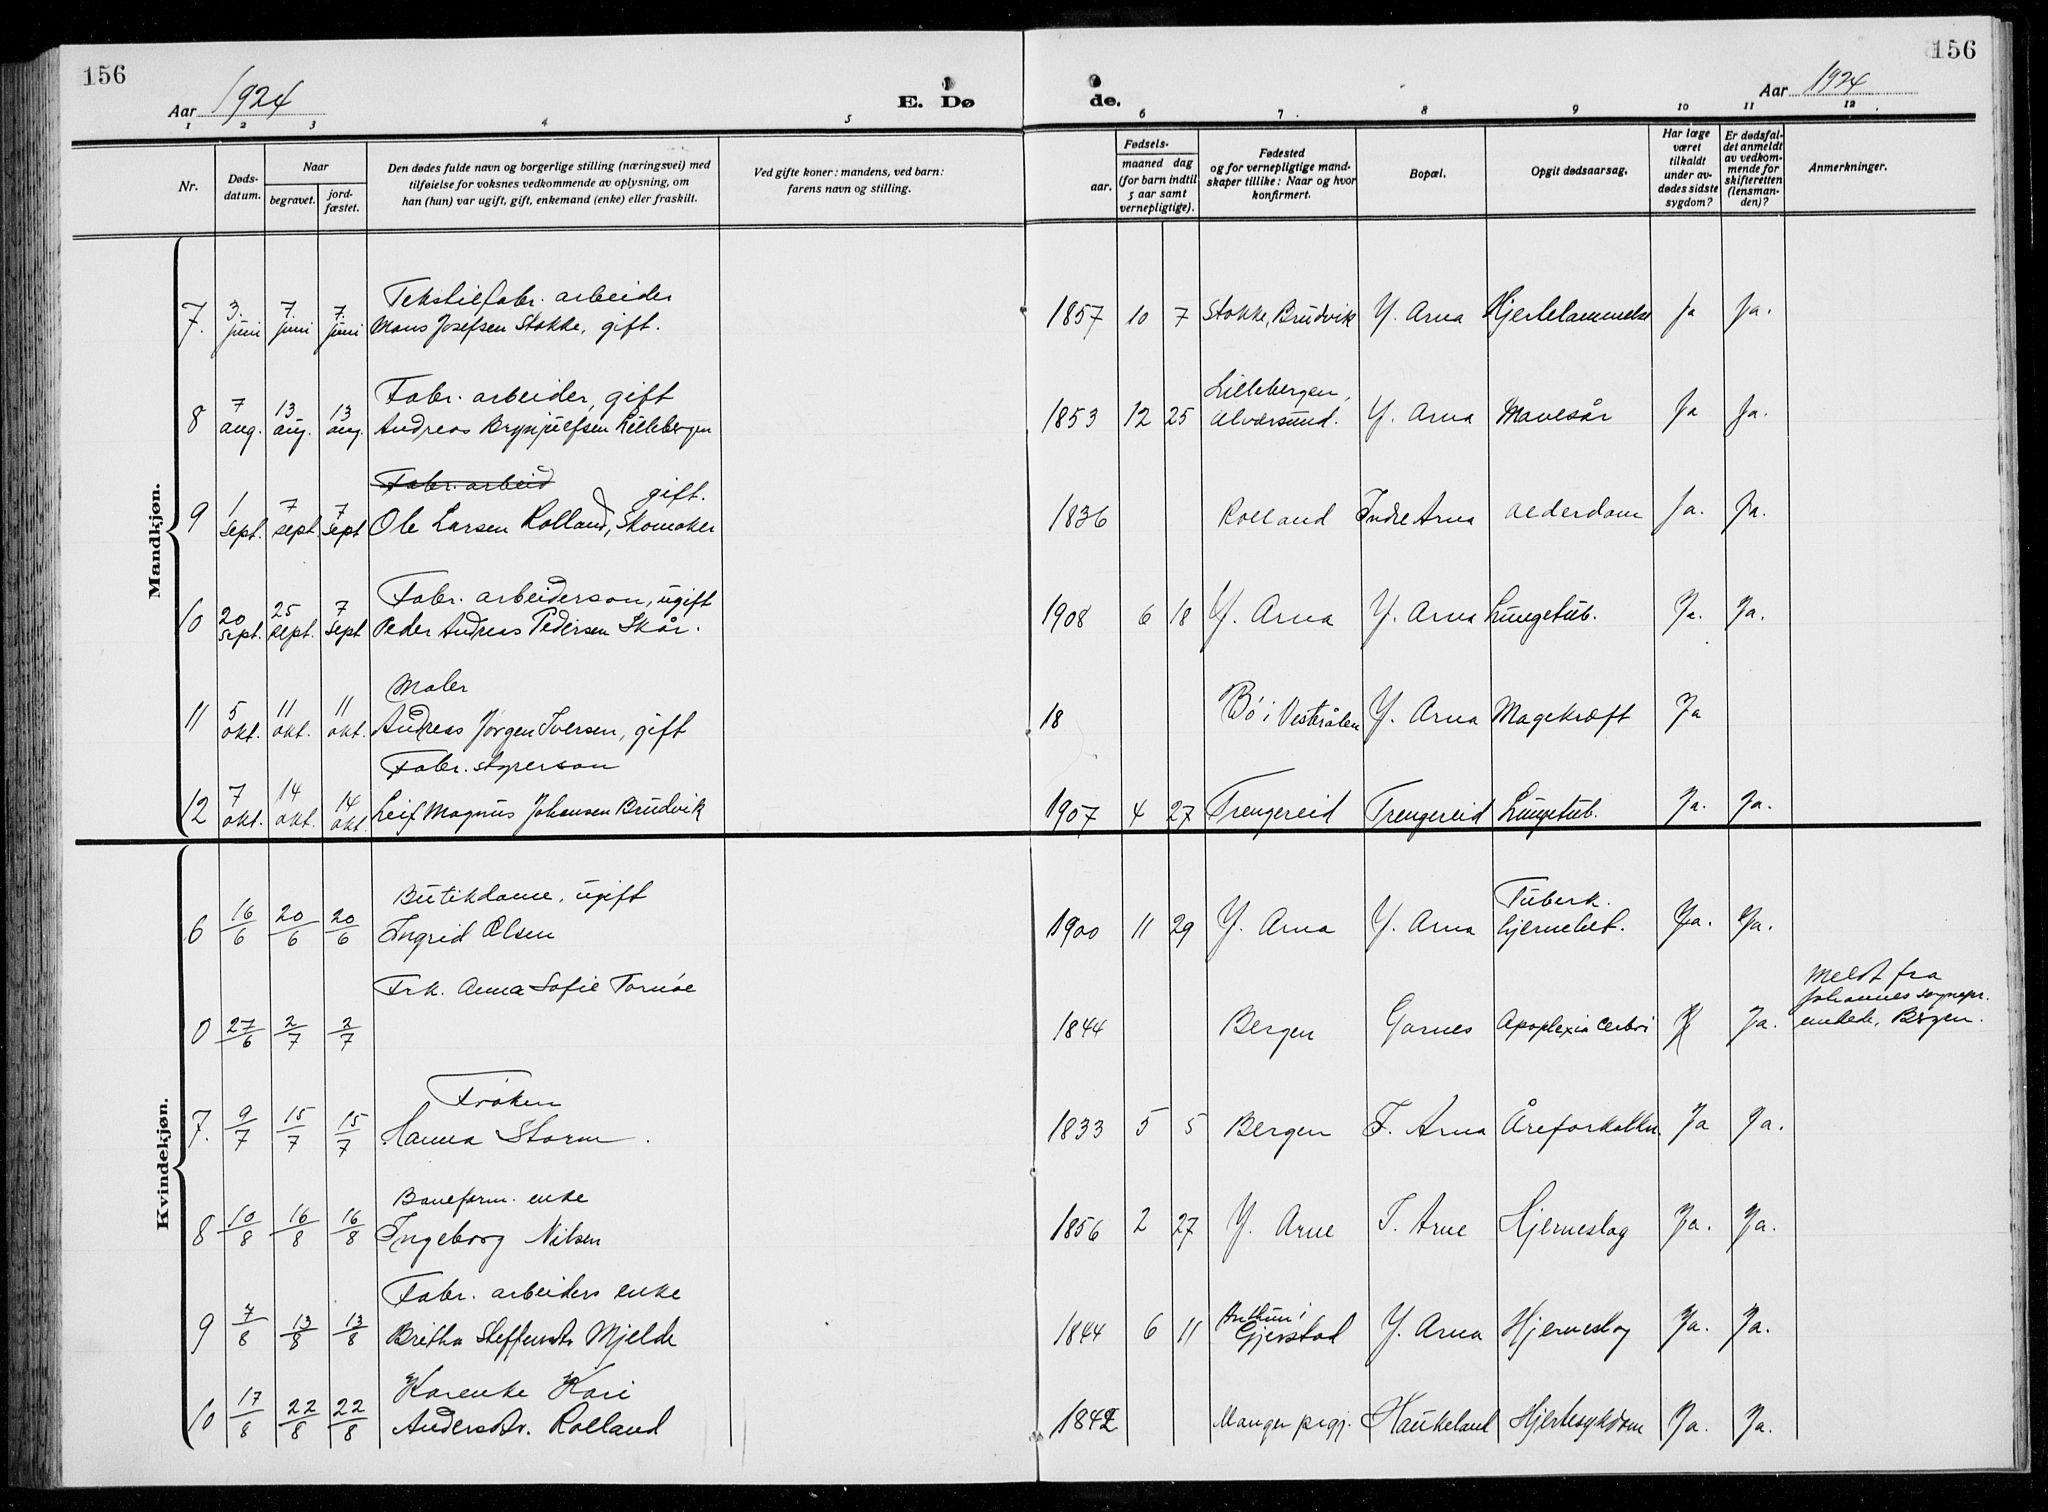 156
156
Aar 1924
E. Dø
de.
Aar 1924
1 2 3 4 5 6 7 8 9 10 11 12
Nr.
Døds-
datum.
Naar
begravet.
jord-
fæstet.
Den dødes fulde navn og borgerlige stilling (næringsvei) med
tilføielse for voksnes vedkommende av oplysning, om
han (hun) var ugift, gift, enkemand (enke) eller fraskilt.
Ved gifte koner: mandens, ved barn:
farens navn og stilling.
Fødsels-
aar.
maaned dag
(for barn indtil
5 aar samt
vernepligtige).
Fødested
og for vernepligtige mand-
skaper tillike: Naar og hvor
konfirmert.
Bopæl.
Opgit dødsaarsag.
Har læge
været
tilkaldt
under av-
dødes sidste
sygdom?
Er dødsfal-
det anmeldt
av vedkom-
mende for
skifteretten
(lensman-
den)?
Anmerkninger.
Mandkjøn.
Tekstilfabr. arbeider
7. 3. juni 7. juni 7. juni Mons Josefsen Stokke, gift. 1857 10 7 Stokke, Brudvik Y. Arna Hjertelammelse Ja Ja.
Fabr. arbeider, gift Lillebergen,
8 7 aug. 13 aug. 13 aug. Andreas Brynjulfsen Lillebergen 1853 12 25 Alversund. Y. Arna Mavesår Ja Ja.
Fabr. arbeid gift.
9 1 Sept. 7 sept 7 Sept Ole Larsen Rolland, Skomaker 1836 Rolland Indre Arna Alderdom Ja. Ja.
Fabr. arbeiderson, ugift
10 20 Sept. 25 Sept. 7 Sept Peder Andreas Pedersen Skår. 1908 6 18 Y. Arna Y. Arna Lungetub. Ja. Ja.
Maler
11 5 okt. 11 okt. 11 okt. Andreas Jørgen Iversen, gift 18 Bø i Vesterålen Y. Arna Magekræft Ja
Fabr.
12 7 okt. 14 okt. 14 okt. Leif Magnus Johansen Brudvik 1907 4 27 Trengereid Trengereid Lungetub. Ja. Ja.
Kvindekjøn.
Butikdame, ugift Tuberk.
6 16/6 20/6 20/6 Ingrid Olsen 1900 11 29 Y. Arna Y. Arna hjernebet. Ja. Ja.
Frk. Anna Sofie Tornøe Meldt fra
Johannes sognepr.
0 27/6 2/7 2/7 1844 Bergen Garnes Apoplexia Cerebri Ja. embede, Bergen.
Frøken
7. 9/7 15/7 15/7 Hanna Storm. 1833 5 5 Bergen I. Arna Åreforkalkn. Ja Ja.
Baneform. enke
8 10/8 16/8 16/8 Ingeborg Nilsen 1856 2 27 Y. Arne I. Arne Hjerneslag Ja. Ja.
Fabr. arbeiders enke
9 7/8 13/8 13/8 Britha Steffensdtr Mjelde 1844 6 11 Gjerstad Y. Arna Hjerneslag Ja. Ja.
Kårenke Kari
10 17/8 22/8 22/8 Andersdtr. Rolland 1842 Manger prgj. Haukeland Hjertesykdom Ja. Ja.